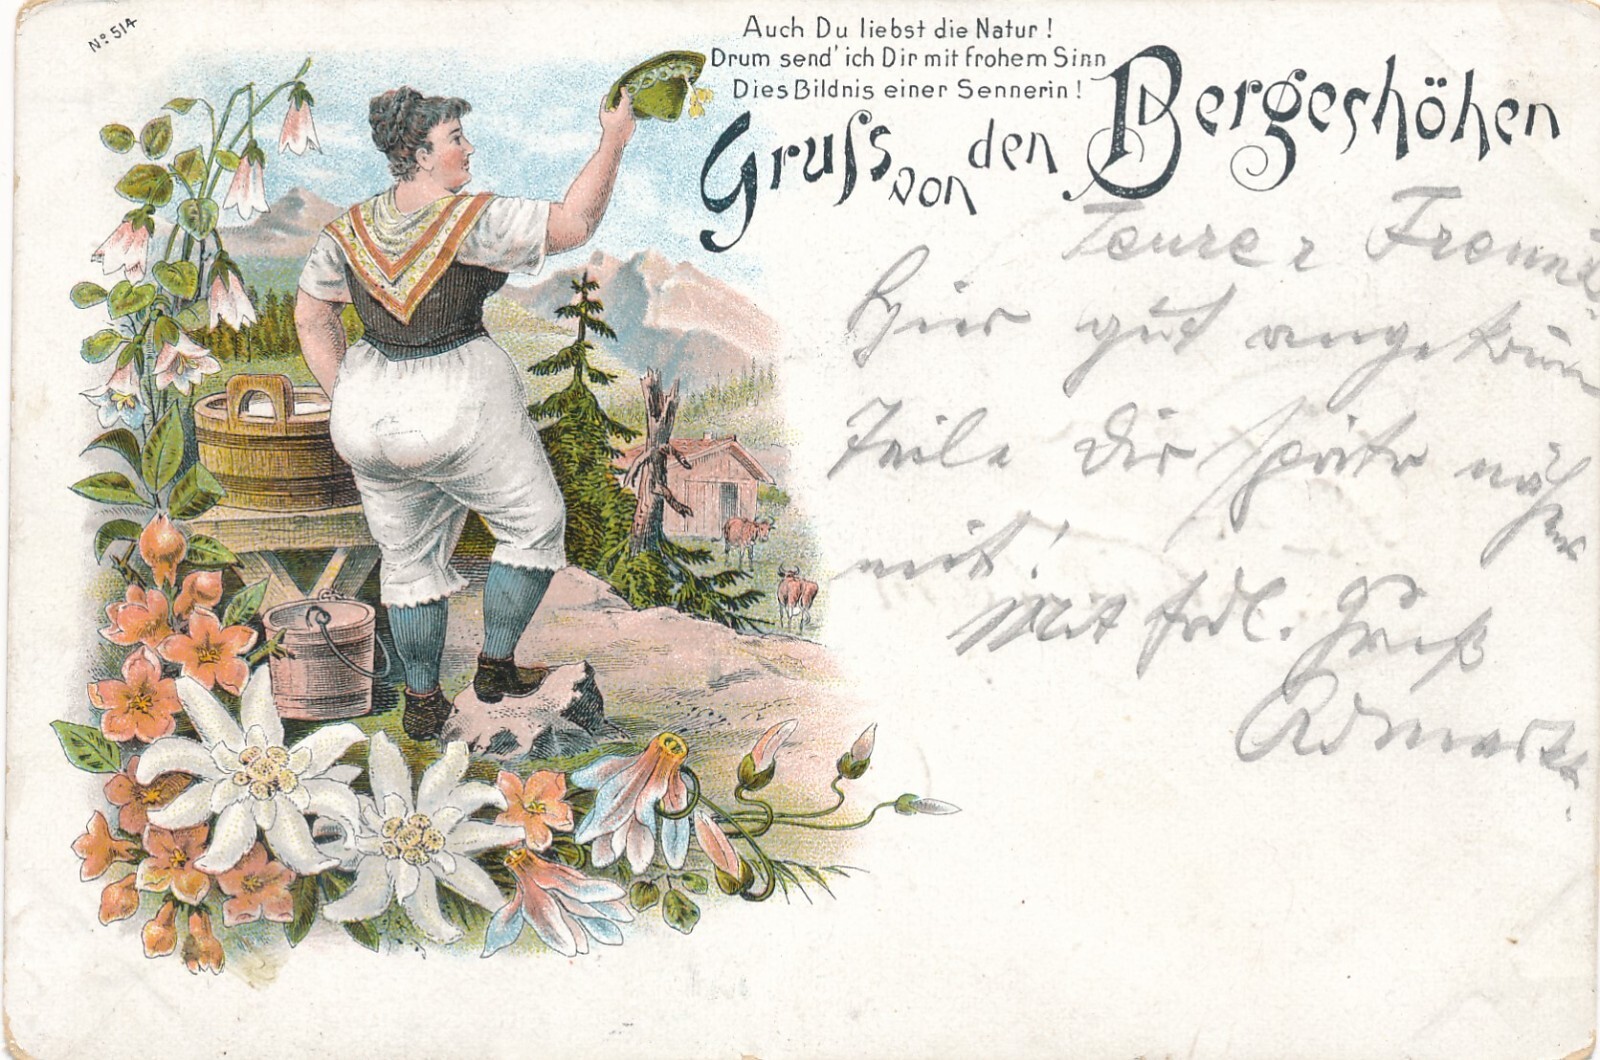 No 514
Auch Du liebst die Natur!
Drum send' ich Dir mit frohem Sinn
Dies Bildnis einer Sennerin!
Gruss von den Bergeshöhen
Teurer Freund
Hier gut angekomm
Teile Dir später näher
mit!
Mit frdl. Gruß